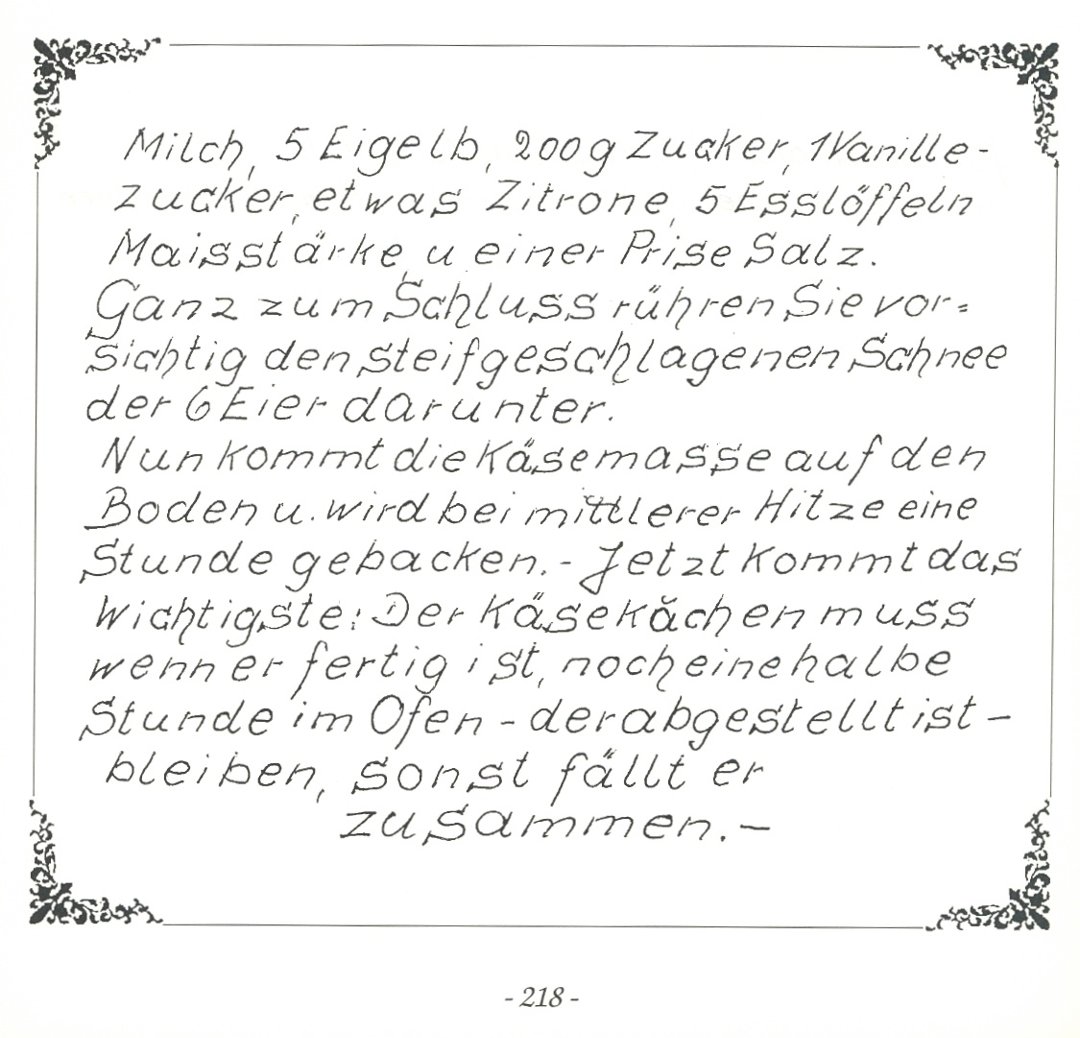 Milch, 5 Eigelb, 200g Zucker, 1 Vanille-
zucker, etwas Zitrone, 5 Esslöffeln
Maisstärke, u einer Prise Salz.
Ganz zum Schluss rühren Sie vor=
sichtig den steifgeschlagenen Schnee
der 6 Eier darunter.
Nun kommt die Käsemasse auf den
Boden u. wird bei mittlerer Hitze eine
Stunde gebacken. - Jetzt kommt das
Wichtigste: Der Käsekächen muss
wenn er fertig ist, noch eine halbe
Stunde im Ofen - der abgestellt ist -
bleiben, sonst fällt er
zusammen. -
- 218 -